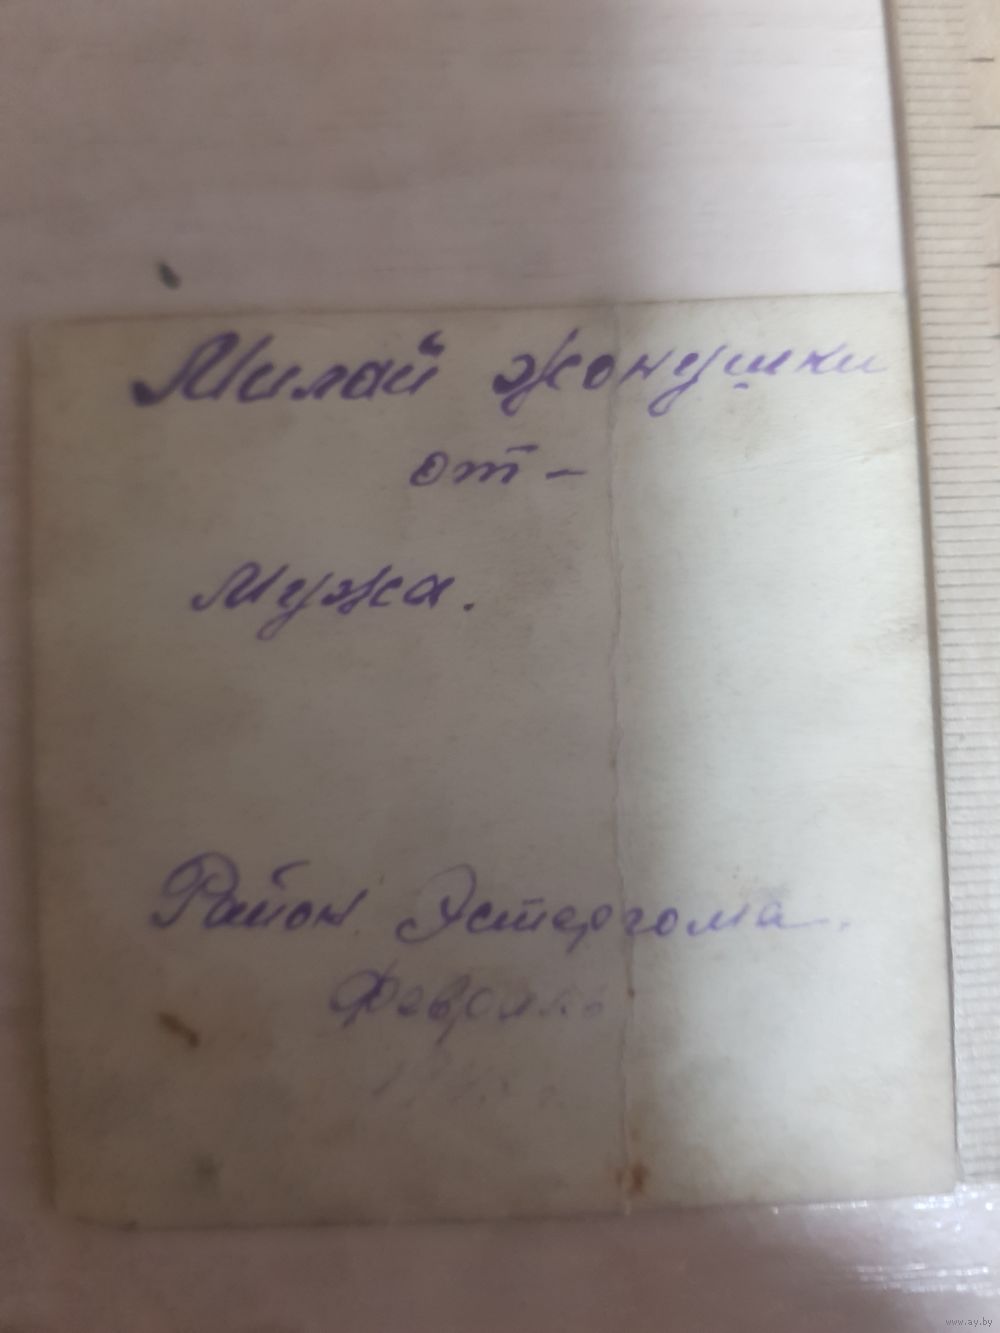 Милай жонушки
от -
Мужа.
Район Эстергома.
Февраль
www.ay.by